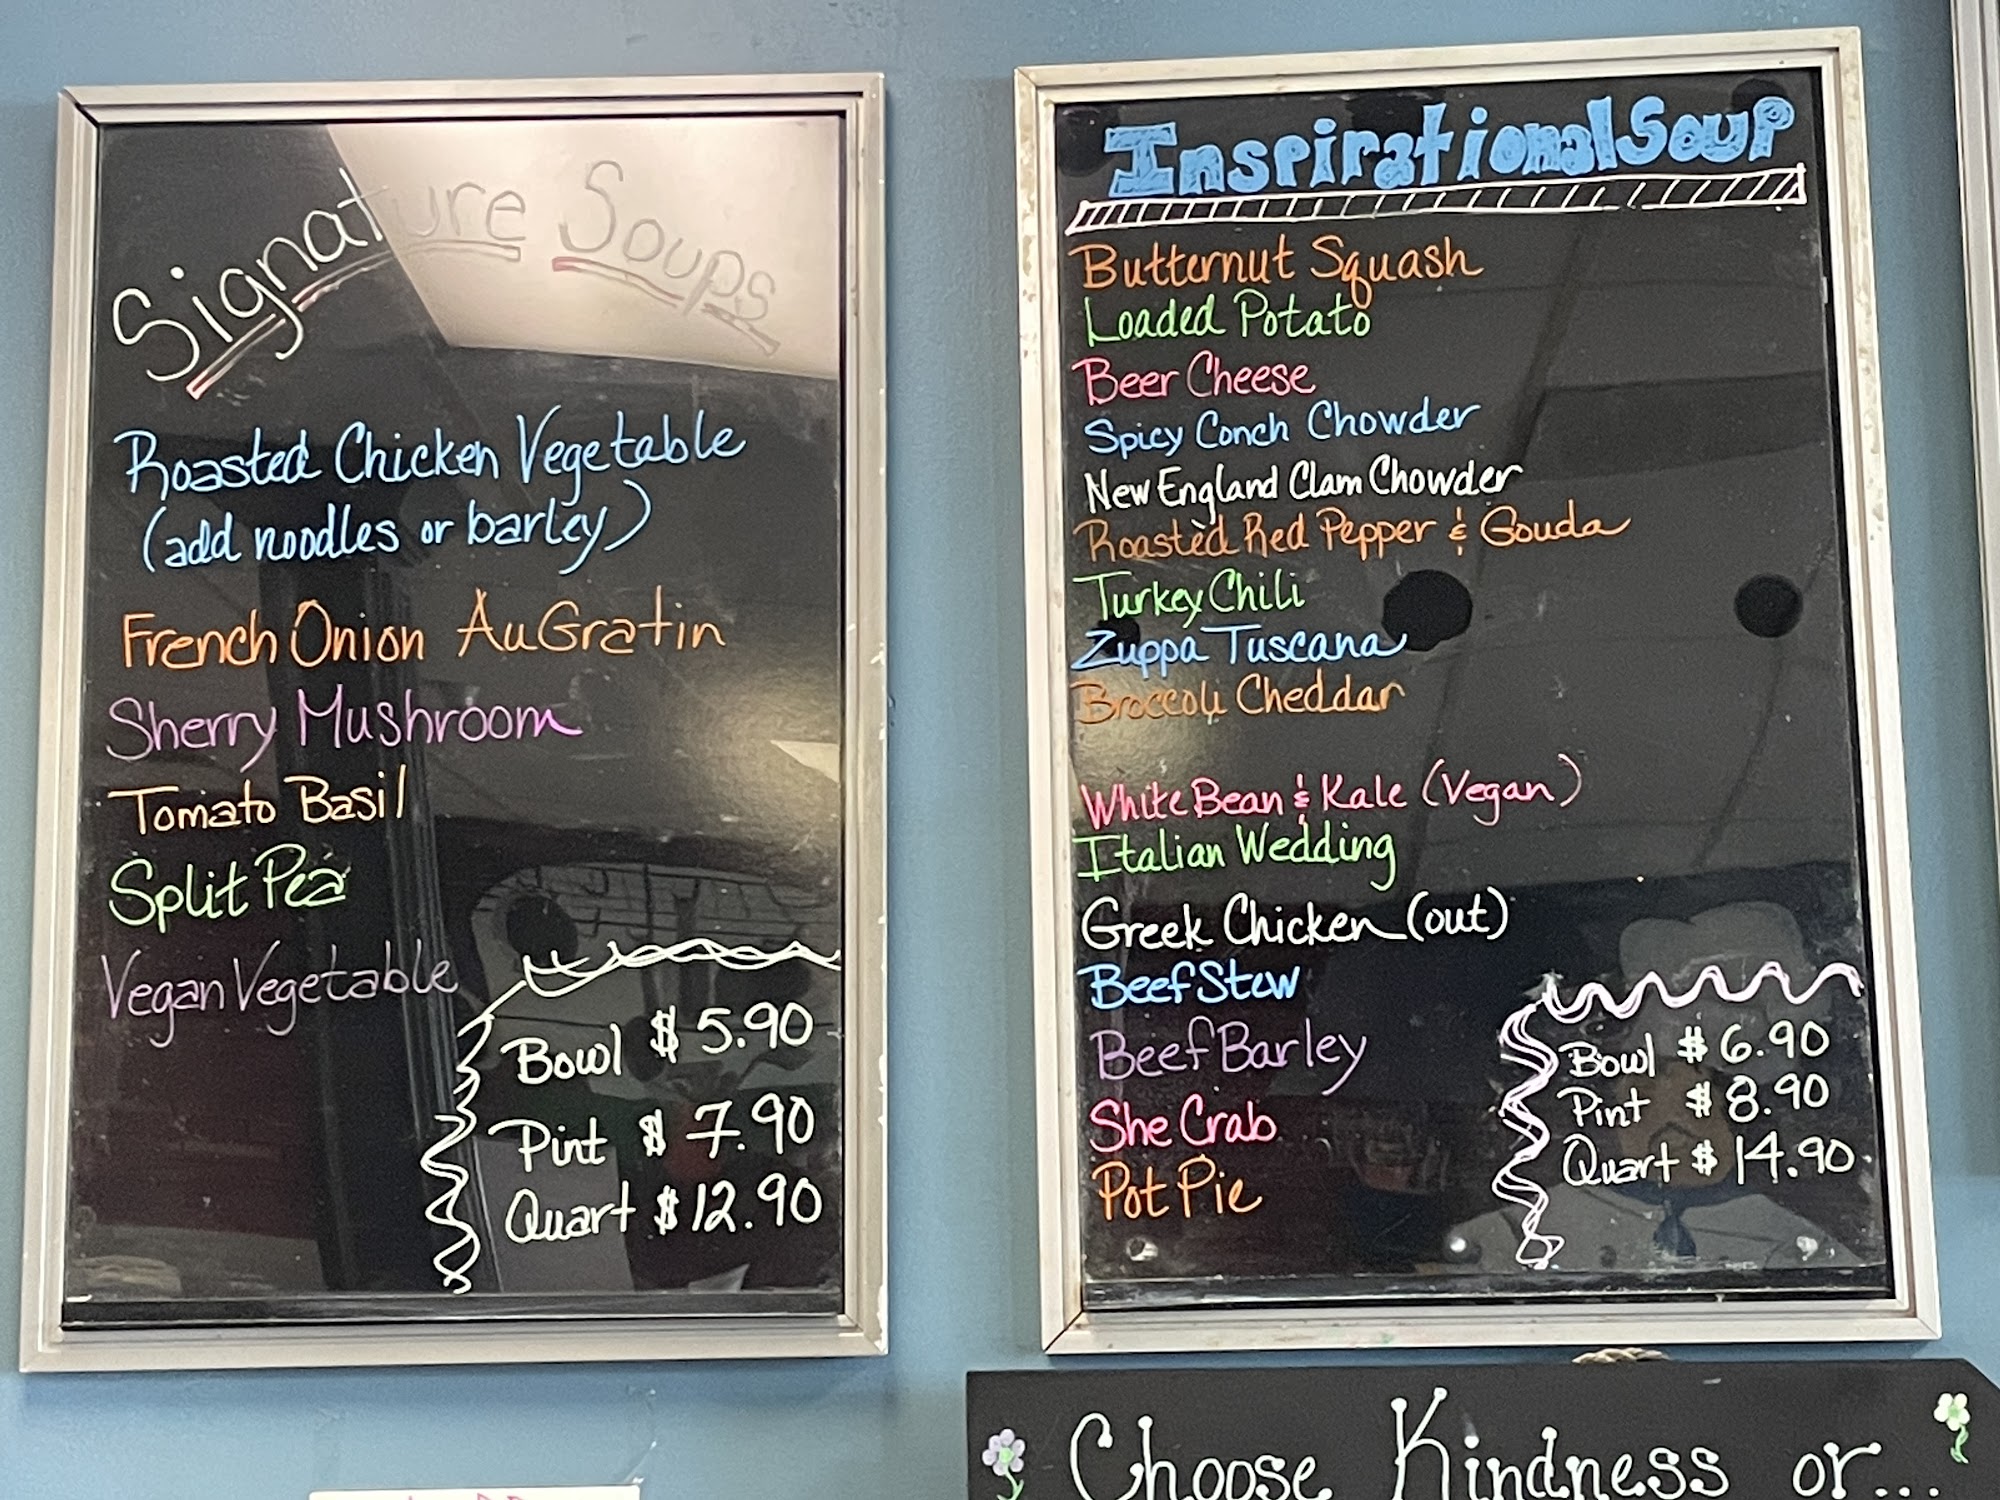 Signature Soups
Roasted Chicken Vegetable
(add noodles or barley)
French Onion AuGratin
Sherry Mushroom
Tomato Basil
Split Pea
Vegan Vegetable
Bowl $5.90
Pint $7.90
Quart $12.90
Inspirational Soup
Butternut Squash
Loaded Potato
Beer Cheese
Spicy Conch Chowder
New England Clam Chowder
Roasted Red Pepper & Gouda
Turkey Chili
Zuppa Tuscana
Broccoli Cheddar
White Bean & Kale (Vegan)
Italian Wedding
Greek Chicken (out)
Beef Stew
Beef Barley
She Crab
Pot Pie
Bowl $6.90
Pint $8.90
Quart $14.90
Choose Kindness or...